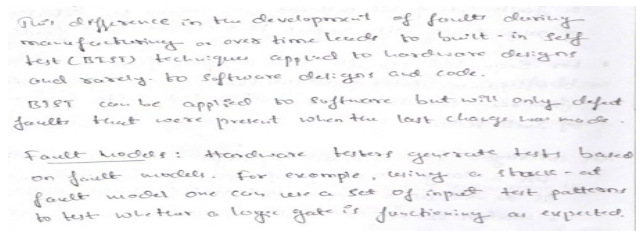 This difference in the development of faults during
manufacturing or over time leads to built-in self
test (BIST) techniques applied to hardware designs
and rarely to software designs and code.
BIST can be applied to software but will only defect
faults that were present when the last change was made.
Fault models: Hardware testers generate tests based
on fault models. For example, using a struck-at
fault model one can use a set of input test patterns
to test whether a logic gate is functioning as expected.